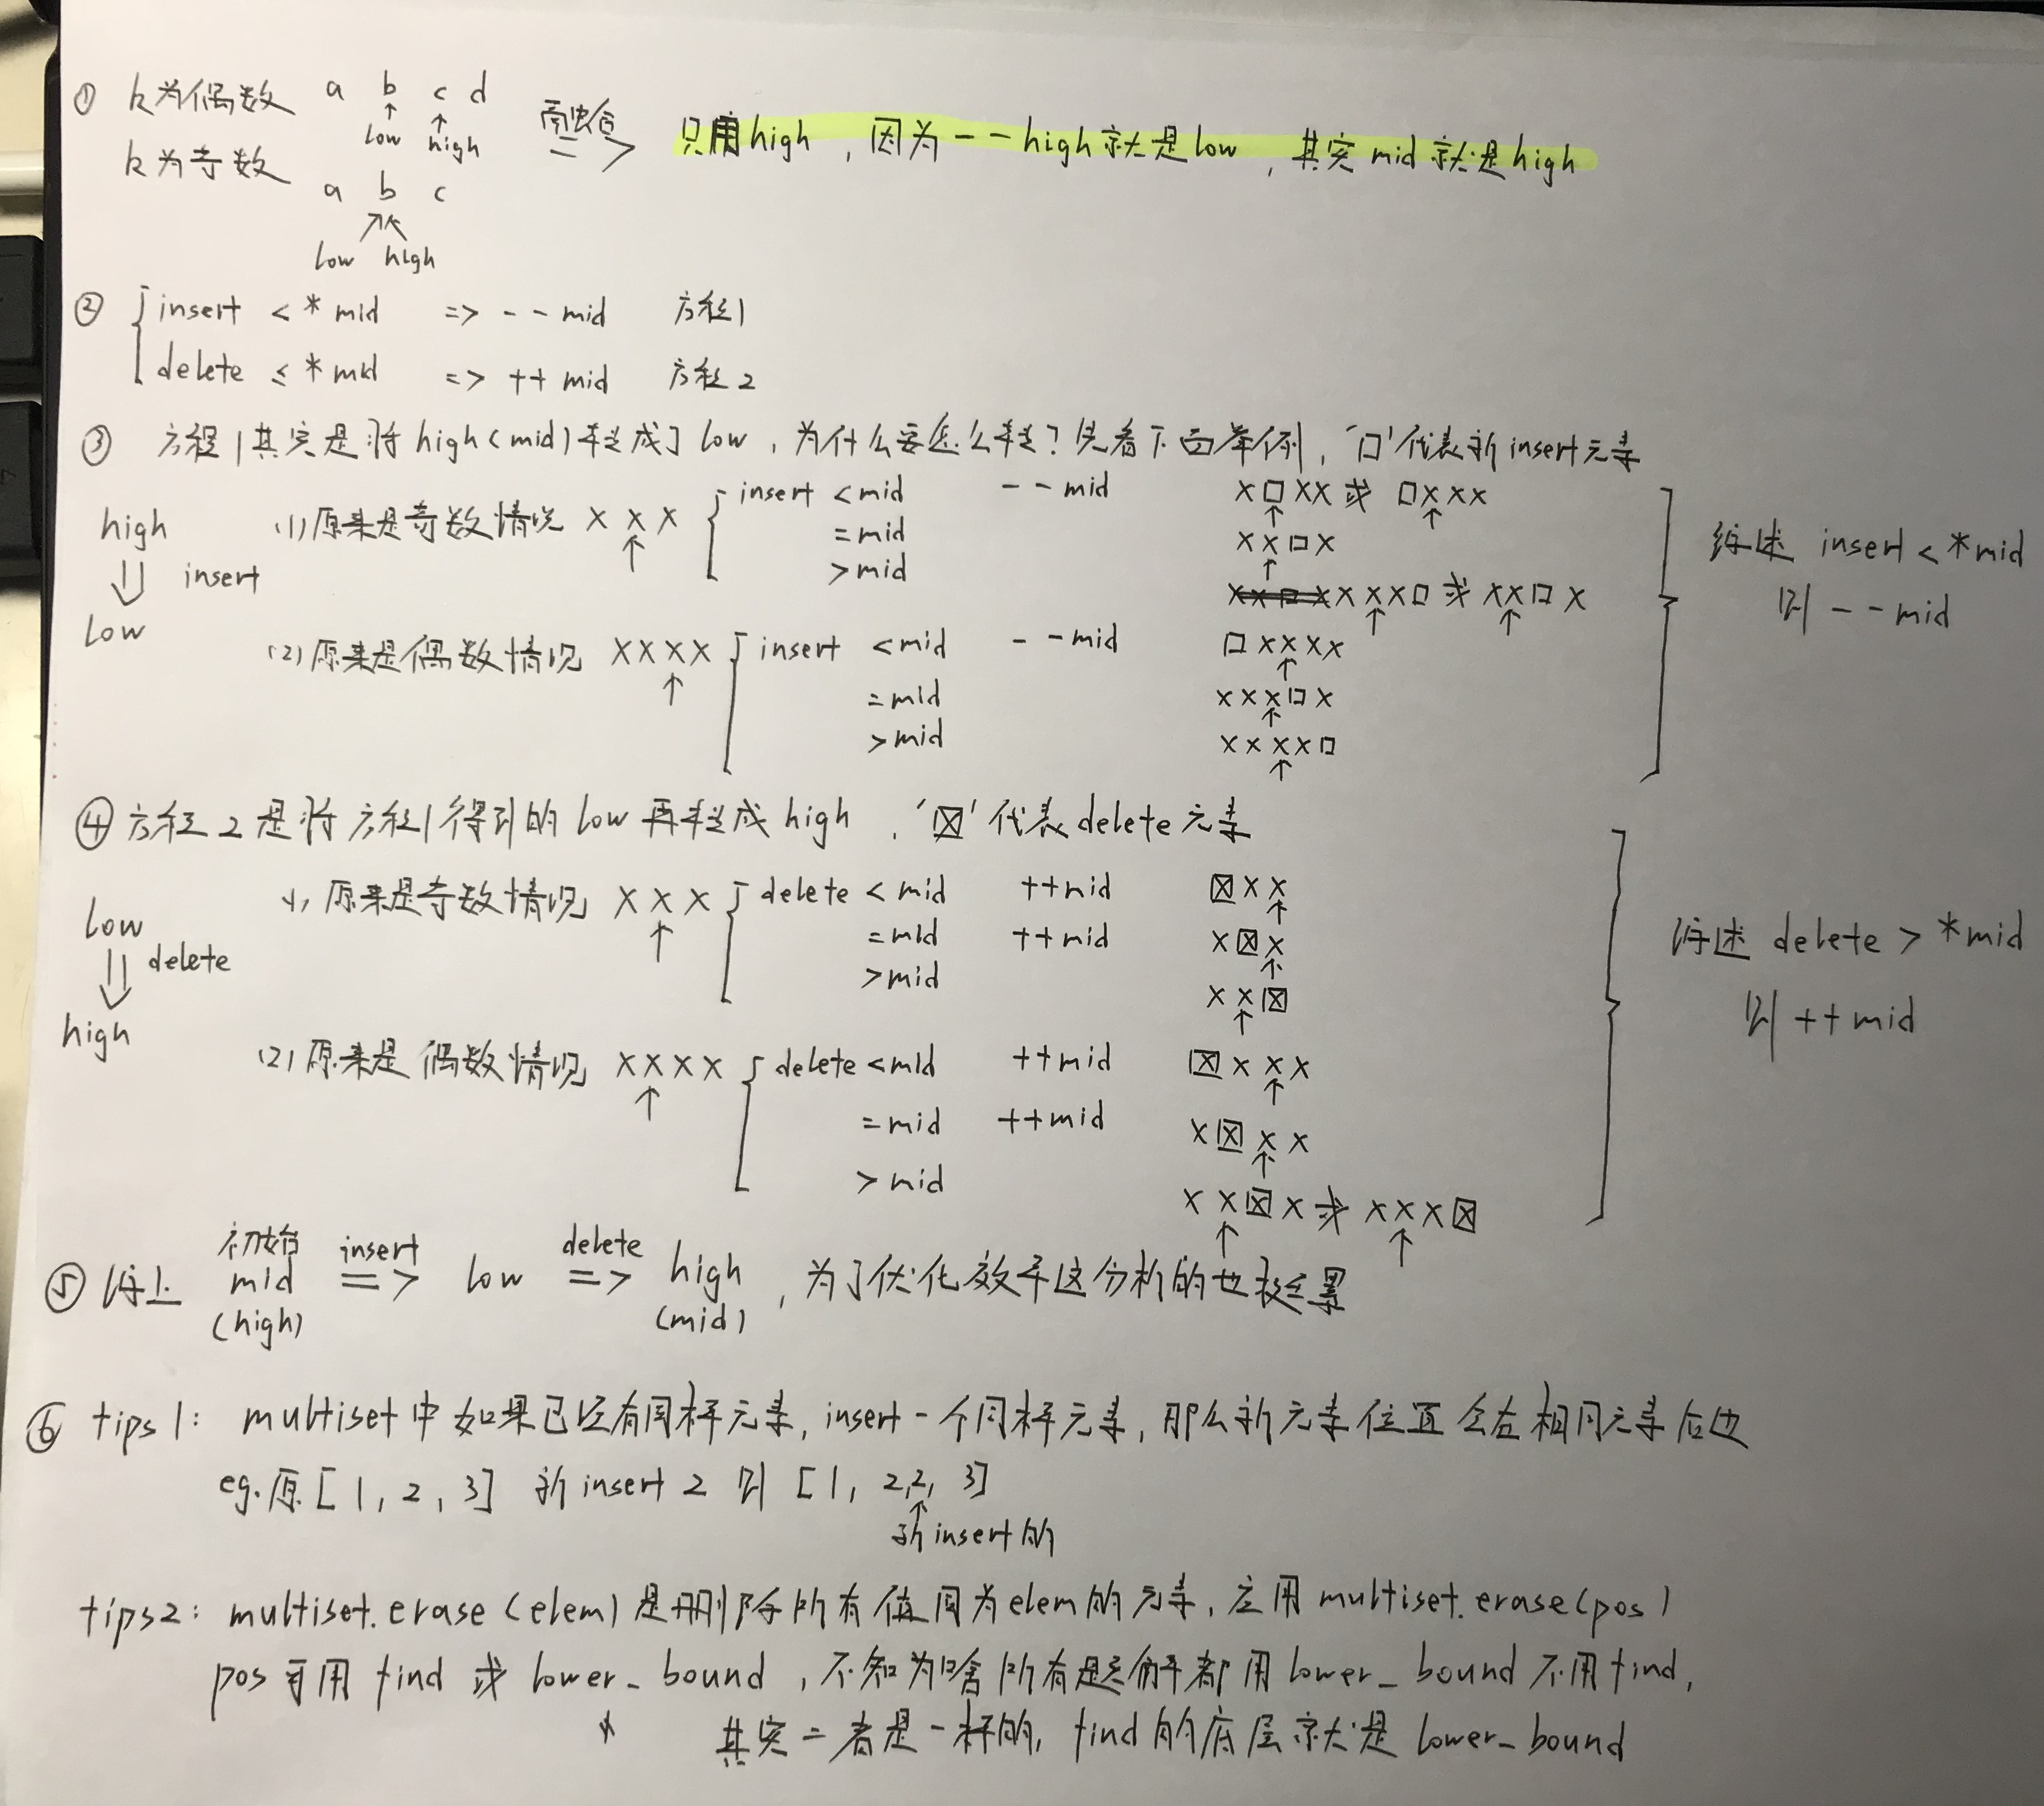 ① k为偶数 a b c d
low high
融合 => 只用high，因为--high就是low，其实mid就是high
k为奇数 a b c
low high
② insert < *mid => --mid 方程1
delete ≤ *mid => ++mid 方程2
③ 方程1其实是将high(mid)转成了low，为什么要怎么转？先看下面举例，'口'代表新insert元素
high
insert
low
(1)原来是奇数情况 XXX insert <mid --mid X口XX或口XXX
=mid XX口X
>mid XXX口或XX口X
(2)原来是偶数情况 XXXX insert <mid --mid 口XXXX
=mid XXX口X
>mid XXXX口
综述 insert < *mid
则 --mid
④ 方程2是将方程1得到的low再转成high，'☒'代表delete元素
low
delete
high
(1)原来是奇数情况 XXX delete <mid ++mid ☒XX
=mid ++mid X☒X
>mid XX☒
(2)原来是偶数情况 XXXX delete <mid ++mid ☒XXX
=mid ++mid X☒XX
>mid XX☒X或XXX☒
综述 delete > *mid
则 ++mid
⑤ 综上 初始mid(high) insert => low delete => high(mid)，为了优化效率这分析的也挺累
⑥ tips1: multiset中如果已经有同样元素，insert一个同样元素，那么新元素位置会在相同元素后边
eg.原[1,2,3] 新insert 2 则 [1,2,2,3]
新insert的
tips2: multiset.erase(elem)是删除所有值同为elem的元素，应用multiset.erase(pos)
pos可用find或lower_bound，不知为啥所有题解都用lower_bound不用find，
其实二者是一样的，find的底层就是lower_bound